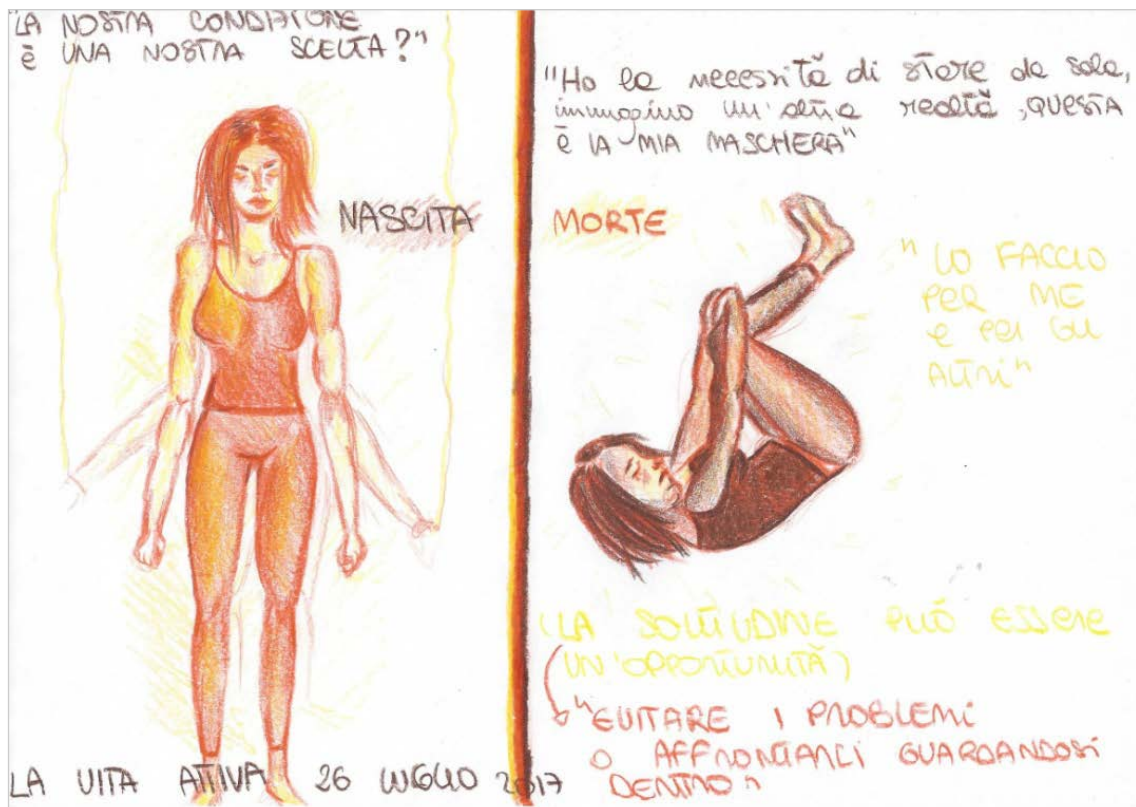 "LA NOSTRA CONDIZIONE
è UNA NOSTRA SCELTA?"
NASCITA
LA VITA ATTIVA 26 LUGLIO 2017
"Ho la necessità di stare da sola,
immagino un'altra realtà, QUESTA
è LA MIA MASCHERA"
MORTE
"LO FACCIO
PER ME
e PER GLI
ALTRI"
(LA SOLITUDINE PUÒ ESSERE
UN'OPPORTUNITÀ)
"EVITARE I PROBLEMI
O AFFRONTARLI GUARDANDOSI
DENTRO"